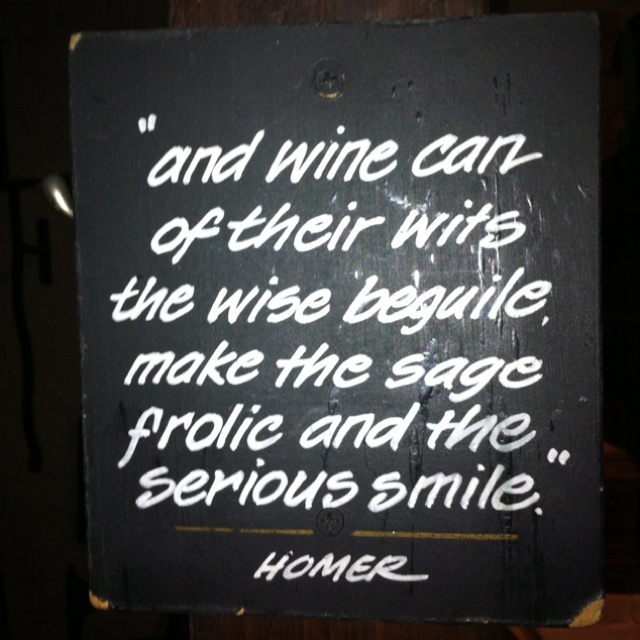 "and wine can
of their wits
the wise beguile,
make the sage
frolic and the
serious smile."
HOMER